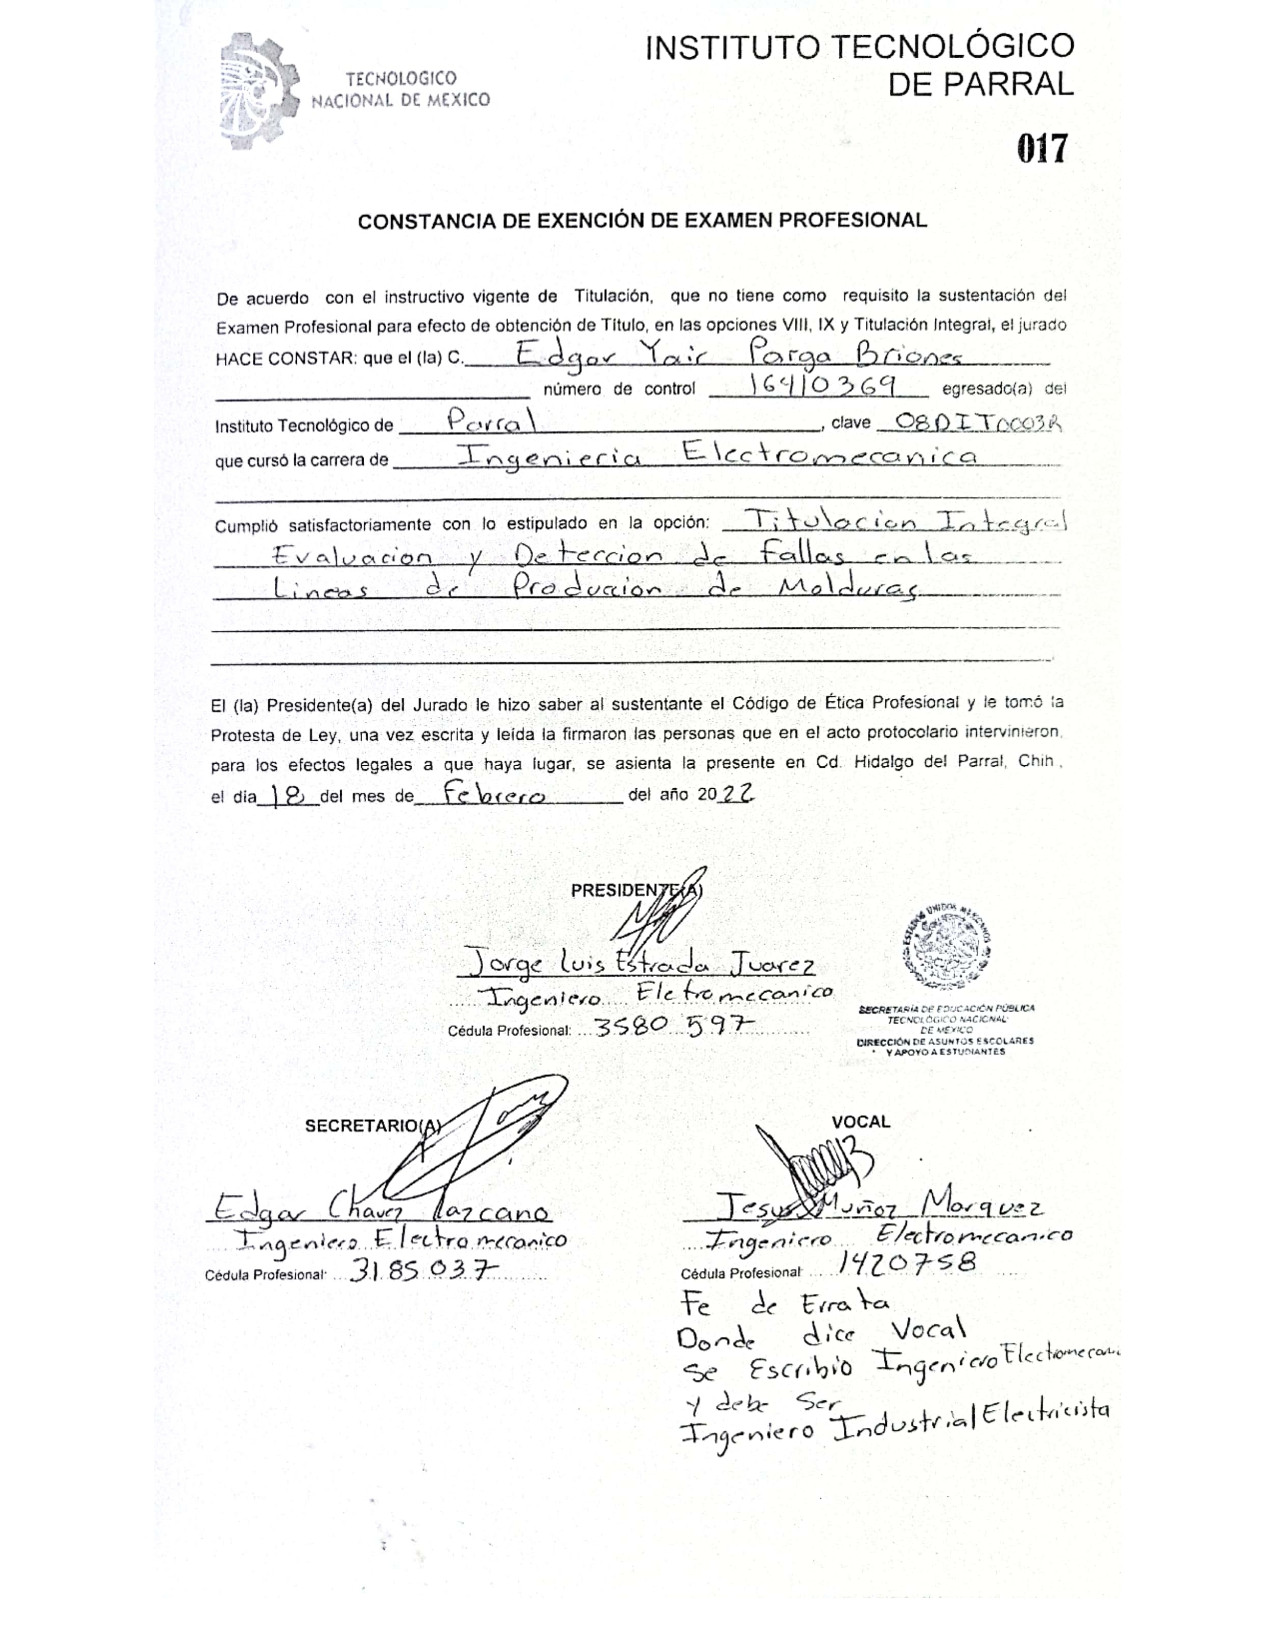 TECNOLOGICO
NACIONAL DE MEXICO
INSTITUTO TECNOLÓGICO
DE PARRAL
017
CONSTANCIA DE EXENCIÓN DE EXAMEN PROFESIONAL
De acuerdo con el instructivo vigente de Titulación, que no tiene como requisito la sustentación del
Examen Profesional para efecto de obtención de Título, en las opciones VIII, IX y Titulación Integral, el jurado
HACE CONSTAR: que el (la) C. Edgar Yair Parga Briones
número de control 16410369 egresado(a) del
Instituto Tecnológico de Parral, clave 08DIT0003R
que cursó la carrera de Ingenieria Electromecanica
Cumplió satisfactoriamente con lo estipulado en la opción: Titulacion Integral
Evaluacion y Deteccion de Fallas en las
Lineas de Produccion de Molduras
El (la) Presidente(a) del Jurado le hizo saber al sustentante el Código de Ética Profesional y le tomó la
Protesta de Ley, una vez escrita y leída la firmaron las personas que en el acto protocolario intervinieron,
para los efectos legales a que haya lugar, se asienta la presente en Cd. Hidalgo del Parral, Chih.,
el día 18 del mes de Febrero del año 2022
PRESIDENTE(A)
Jorge Luis Estrada Juarez
Ingeniero Eletromecanico
Cédula Profesional: 3580597
ESTADOS UNIDOS MEXICANOS
SECRETARÍA DE EDUCACIÓN PÚBLICA
TECNOLÓGICO NACIONAL
DE MÉXICO
DIRECCIÓN DE ASUNTOS ESCOLARES
Y APOYO A ESTUDIANTES
SECRETARIO(A)
Edgar Chavez Lazcano
Ingeniero Electromecanico
Cédula Profesional: 3185037
VOCAL
Jesus Muñoz Marquez
Ingeniero Electromecanico
Cédula Profesional 1420758
Fe de Errata
Donde dice Vocal
se Escribio Ingeniero Electromecani
y debe Ser
Ingeniero Industrial Electricista